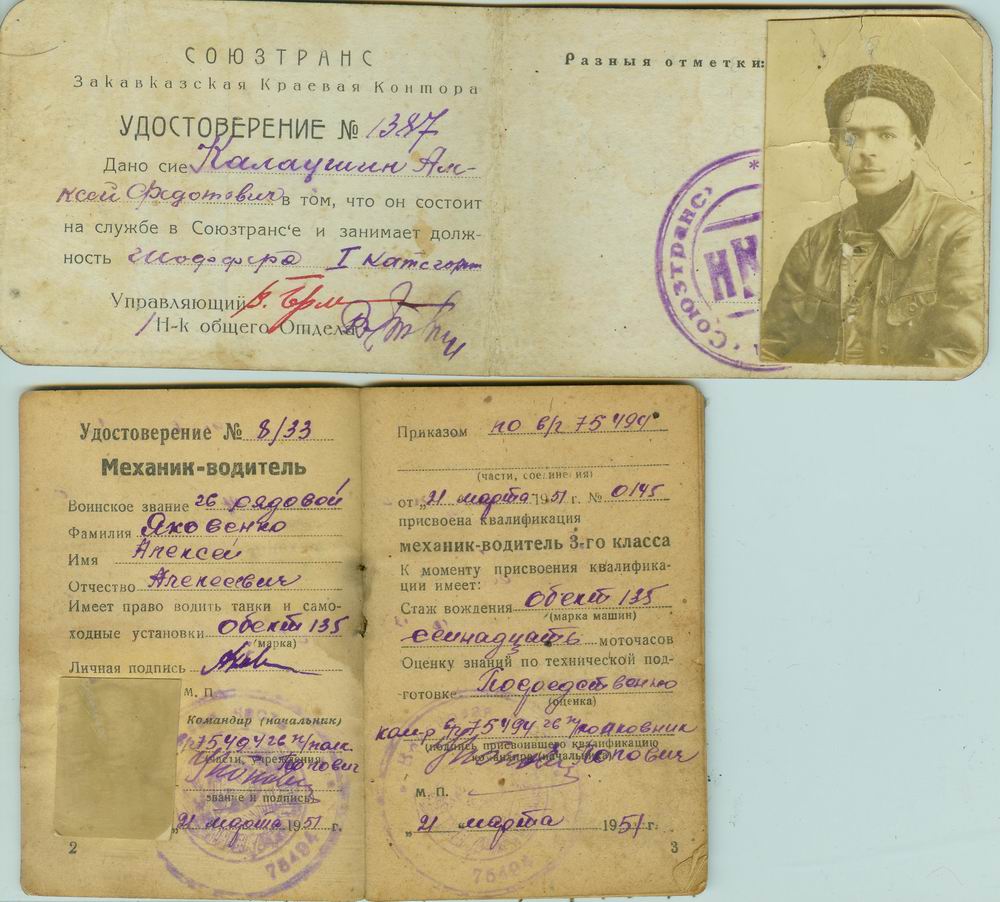 СОЮЗТРАНС
Закавказская Краевая Контора
УДОСТОВЕРЕНИЕ № 1387
Дано сие Калаушин Але-
ксей Федотович в том, что он состоит
на службе в Союзтранс'е и занимает долж-
ность шоффера I категории
Управляющий
Н-к общего Отдела
Разныя отметки:
Союзтранс
Удостоверение № 8/33
Механик-водитель
Воинское звание гв рядовой
Фамилия Яковенко
Имя Алексей
Отчество Алексеевич
Имеет право водить танки и само-
ходные установки обект 135
(марка)
Личная подпись
М. П.
Командир (начальник)
в/ч 75494 гв п/полк
части, учреждения
Попович
звание и подпись
„21 марта 1951 г.
75494
2
Приказом по в/ч 75494
(части, соединения)
от „21 марта 1951 г. № 0145
присвоена квалификация
механик-водитель 3-го класса
К моменту присвоения квалифика-
ции имеет:
Стаж вождения обект 135
(марка машин)
семнадцать моточасов
Оценку знаний по технической под-
готовке Посредственно
(оценка)
ком-р в/ч 75494 гв п/полковник
(подпись присвоившего квалификацию
командира (начальника)
Попович
М. П.
„21 марта 1951 г.
75494
3